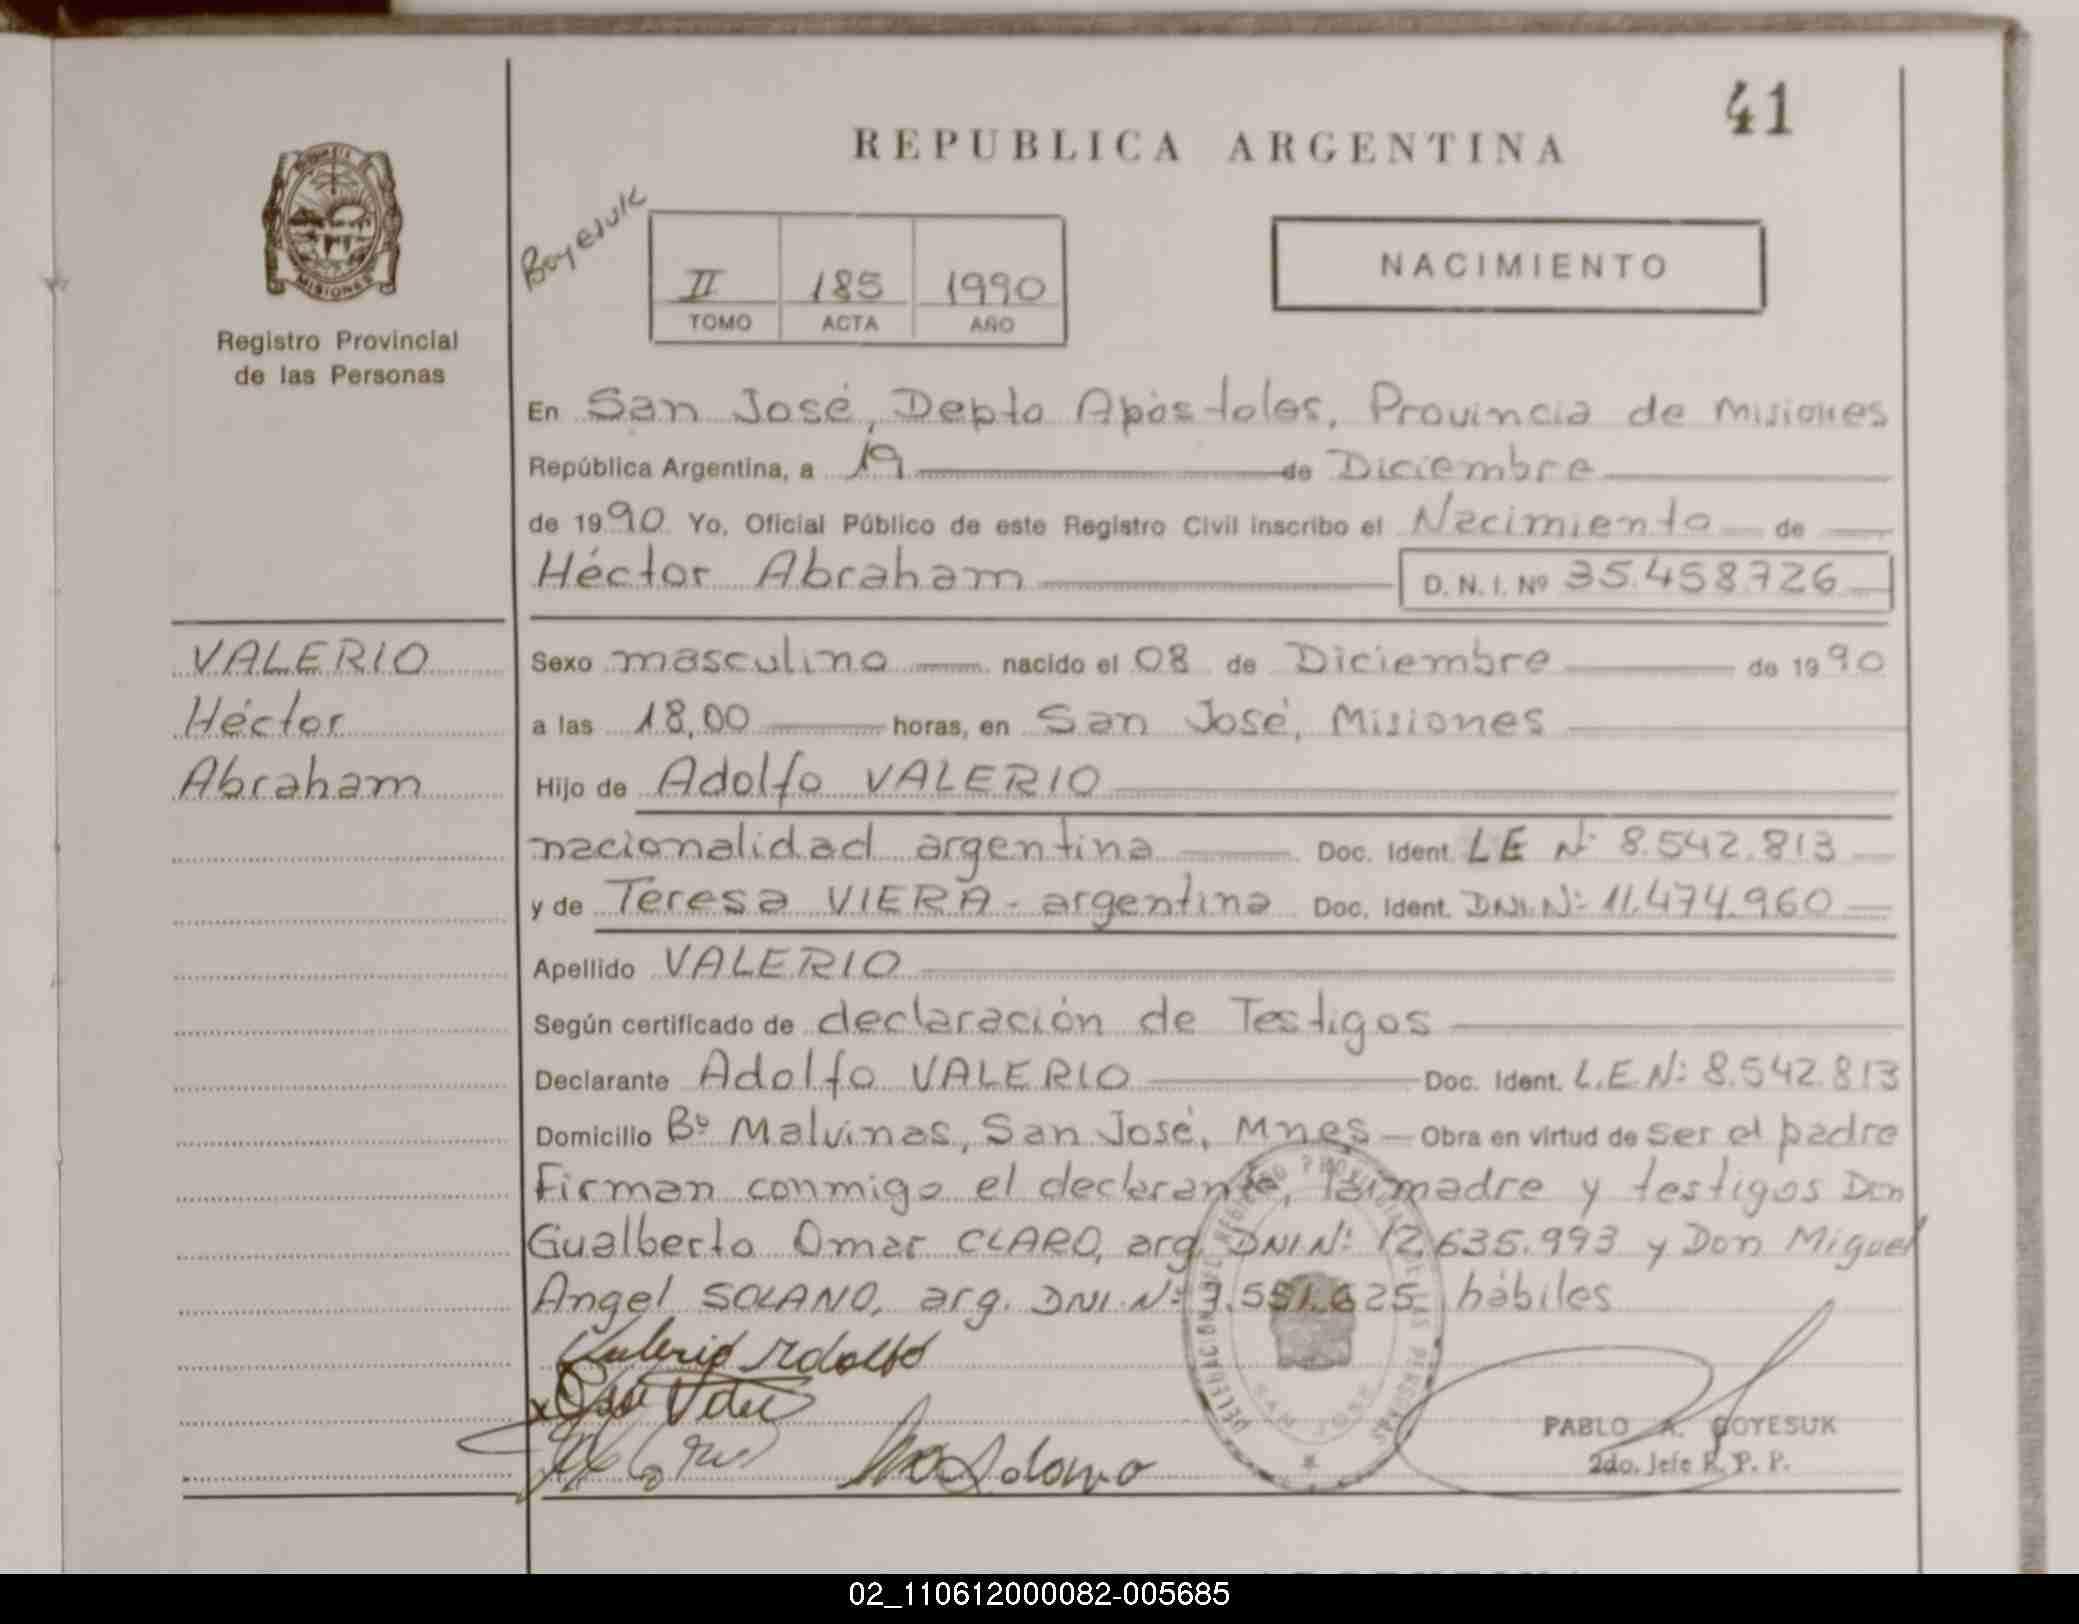 41
REPUBLICA ARGENTINA
MISIONES
Registro Provincial
de las Personas
Boyesuk
II 185 1990
TOMO ACTA AÑO
NACIMIENTO
En San José, Depto Apóstoles, Provincia de Misiones
República Argentina, a 19 de Diciembre
de 1990 Yo, Oficial Público de este Registro Civil inscribo el Nacimiento de
Héctor Abraham D. N. I. Nº 35.458.726
VALERIO
Héctor
Abraham
Sexo masculino nacido el 08 de Diciembre de 1990
a las 18,00 horas, en San José, Misiones
Hijo de Adolfo VALERIO
nacionalidad argentina Doc. Ident. LE Nº 8.542.813
y de Teresa VIERA - argentina Doc. Ident. DNI.Nº 11.474.960
Apellido VALERIO
Según certificado de declaración de Testigos
Declarante Adolfo VALERIO Doc. Ident. L.E.Nº 8.542.813
Domicilio Bº Malvinas, San José, Mnes Obra en virtud de ser el padre
Firman conmigo el declarante, la madre y testigos Don
Gualberto Omar CLARO, arg. DNI Nº 12.635.993 y Don Miguel
Angel SOLANO, arg. DNI.Nº .551.625 hábiles
Valerio Adolfo
Solano
DELEGACION DEL REGISTRO PROVINCIAL DE LAS PERSONAS
SAN JOSE
PABLO A. BOYESUK
2do. Jefe R. P. P.
02_110612000082-005685